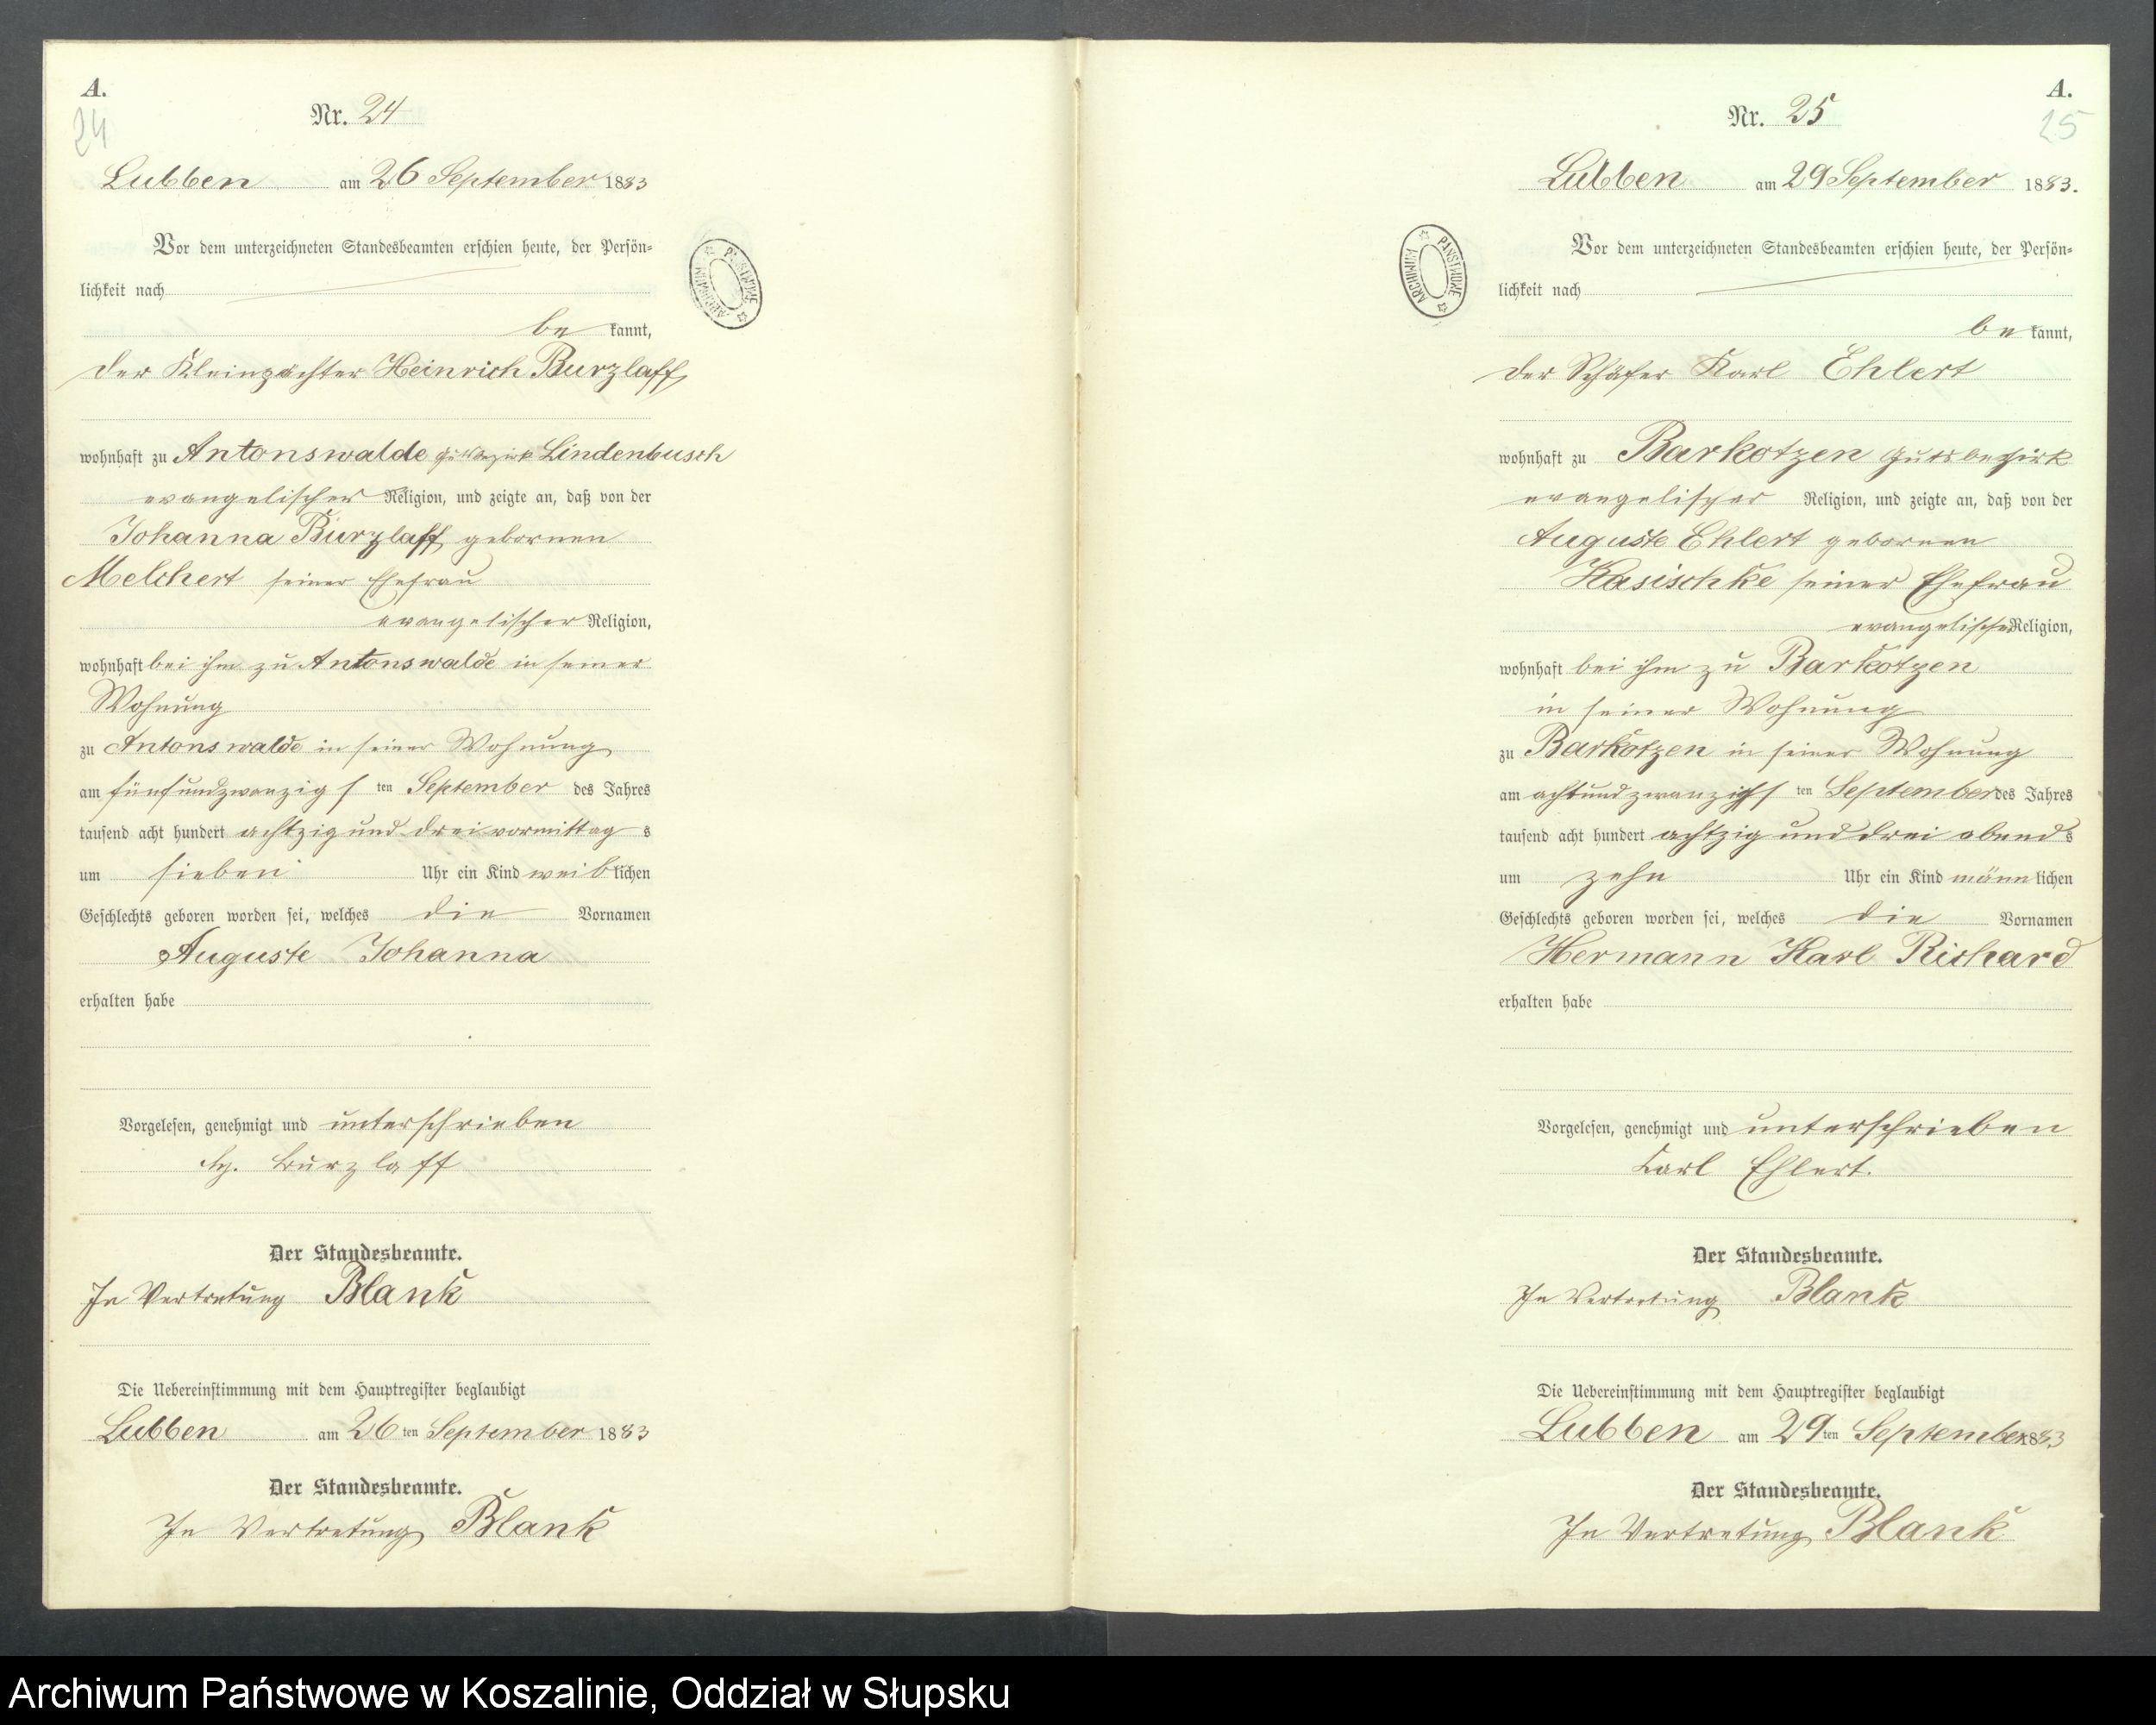 A.
24
Nr. 24
Lubben am 26 September 1883
Vor dem unterzeichneten Standesbeamten erschien heute, der Persön-
lichkeit nach
be kannt,
der Kleinpächter Heinrich Burzlaff
wohnhaft zu Antonswalde Gutsbezirk Lindenbusch
evangelischer Religion, und zeigte an, daß von der
Johanna Burzlaff gebornen
Melchert seiner Ehefrau
evangelischer Religion,
wohnhaft bei ihm zu Antonswalde in seiner
Wohnung
zu Antonswalde in seiner Wohnung
am fünfundzwanzigs ten September des Jahres
tausend acht hundert achtzig und drei vormittag s
um sieben Uhr ein Kind weib lichen
Geschlechts geboren worden sei, welches die Vornamen
Auguste Johanna
erhalten habe
Vorgelesen, genehmigt und unterschrieben
Burzlaff
Der Standesbeamte.
In Vertretung Blank
Die Uebereinstimmung mit dem Hauptregister beglaubigt
Lubben am 26 ten September 1883
Der Standesbeamte.
In Vertretung Blank
ARCHIWUM PAŃSTWOWE
A.
25
Nr. 25
Lubben am 29 September 1883.
Vor dem unterzeichneten Standesbeamten erschien heute, der Persön-
lichkeit nach
be kannt,
der Schäfer Karl Ehlert
wohnhaft zu Barkotzen Gutsbezirk
evangelischer Religion, und zeigte an, daß von der
Auguste Ehlert gebornen
Kasischke seiner Ehefrau
evangelischer Religion,
wohnhaft bei ihm zu Barkotzen
in seiner Wohnung
zu Barkotzen in seiner Wohnung
am achtundzwanzigs ten September des Jahres
tausend acht hundert achtzig und drei abend s
um zehn Uhr ein Kind männ lichen
Geschlechts geboren worden sei, welches die Vornamen
Hermann Karl Richard
erhalten habe
Vorgelesen, genehmigt und unterschrieben
Karl Ehlert.
Der Standesbeamte.
In Vertretung Blank
Die Uebereinstimmung mit dem Hauptregister beglaubigt
Lubben am 29 ten September 1883
Der Standesbeamte.
In Vertretung Blank
ARCHIWUM PAŃSTWOWE
Archiwum Państwowe w Koszalinie, Oddział w Słupsku